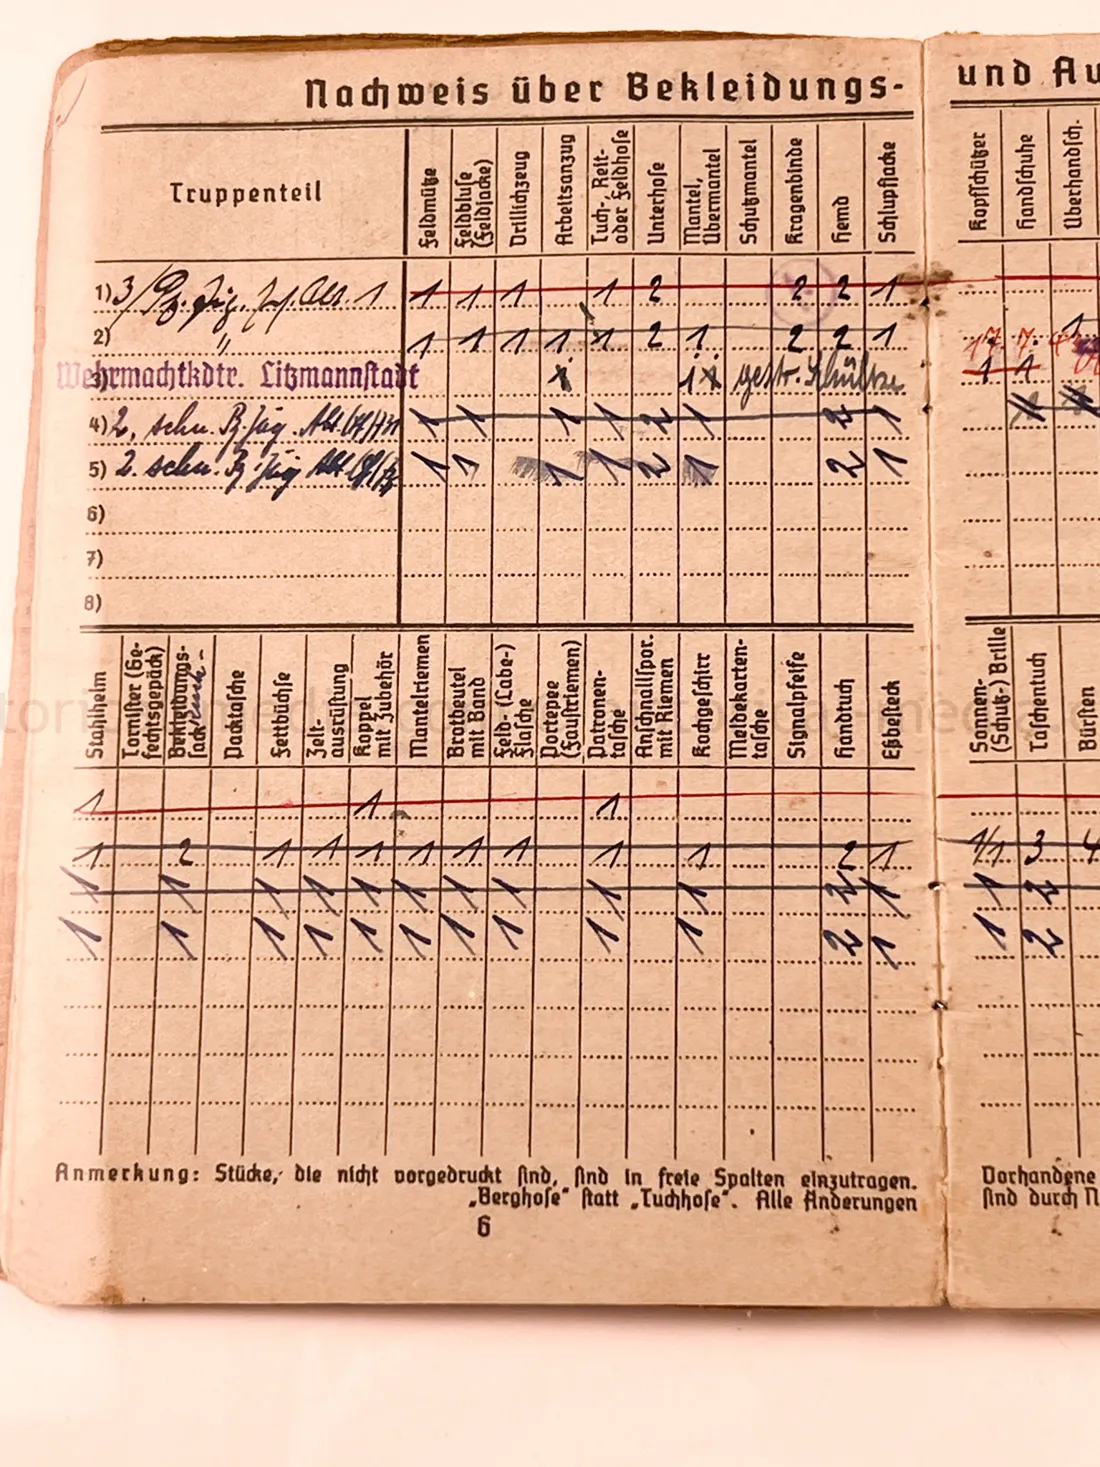 Nachweis über Bekleidungs-
und Au
Truppenteil
Feldmütze
Feldbluse (Feldjacke)
Drillichzeug
Arbeitsanzug
Tuch-, Reit- oder Feldhose
Unterhose
Mantel, Übermantel
Schutzmantel
Kragenbinde
Hemd
Schlupfjacke
Kopfschützer
Handschuhe
Überhandsch.
1) 3/Pz. Jäg. Abt. 1 1 1 1 1 2 2 2 1
2) " 1 1 1 1 1 2 1 2 2 1 1
3) Wehrmachtkdtr. Litzmannstadt 1 gestr. 1 1
4) 2. schw. Pz. Jäg. Abt. 1 1 1 2 1 2 1
5) 2. schw. Pz. Jäg. Abt. 1 1 1 1 2 1 2 1
6)
7)
8)
Stahlhelm
Tornister (Gefechtsgepäck)
Bekleidungs-sack
Packtasche
Fettbüchse
Zelt-ausrüstung
Koppel mit Zubehör
Mantelriemen
Brotbeutel mit Band
Feld- (Labe-) Flasche
Portepee (Faustriemen)
Patronen-tasche
Anschnallspor. mit Riemen
Kochgeschirr
Meldekarten-tasche
Signalpfeife
Handtuch
Eßbesteck
Sonnen- (Schutz-) Brille
Taschentuch
Bürsten
1 1 1
1 2 1 1 1 1 1 1 1 1 2 1 1/1 3 4
1 1 1 1 1 1 1 1 1 1 2 1 1 2
1 1 1 1 1 1 1 1 1 1 2 1 1 2
Anmerkung: Stücke, die nicht vorgedruckt sind, sind in freie Spalten einzutragen.
„Berghose“ statt „Tuchhose“. Alle Änderungen
6
Vorhandene
sind durch N